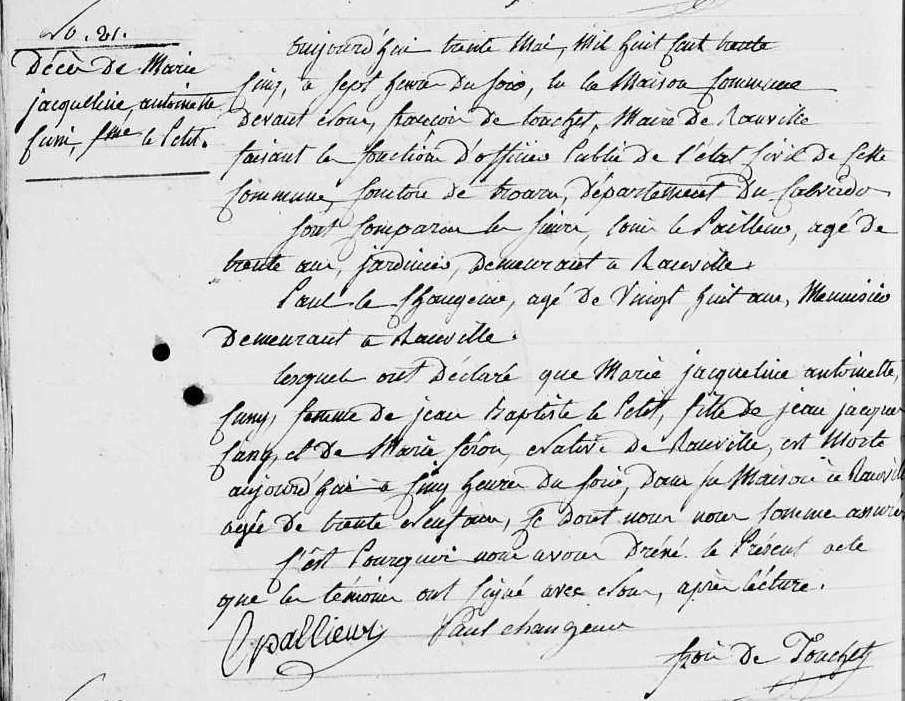 No. 21.
Décès de Marie
jacqueline, antoinette
fme le Petit.
aujourd'hui trente Mai, Mil huit cent trente
Cinq, a sept heure du soir, en la Maison Commune
devant Nous, francois de touchet, Maire de Rauville
faisant le fonction d'officier Public de l'état Civil de Cette
Commune, Canton de troarn, département du Calvados
sont Comparu les sieurs, Louis le Pailleur, agé de
trente ans, jardinier, demeurant a Rauville.
Paul le Changeur, agé de Vingt huit ans, Menuisier
Demeurant a Rauville.
lesquels ont Déclaré que Marie jacqueline antoinette,
femme de jean Baptiste le Petit, fille de jean jacques
et de Marie féron, Native de Rauville, est Morte
aujourd'hui a Cinq heures du soir, dans sa Maison a Rauville
agée de trente Neuf ans, Ce dont nous nous somme assuré
C'est Pourquoi nous avons dréssé le Présent acte
que les témoins ont signé avec Nous, après lécture.
Pallieur Paul changeur
fçois de Touchet